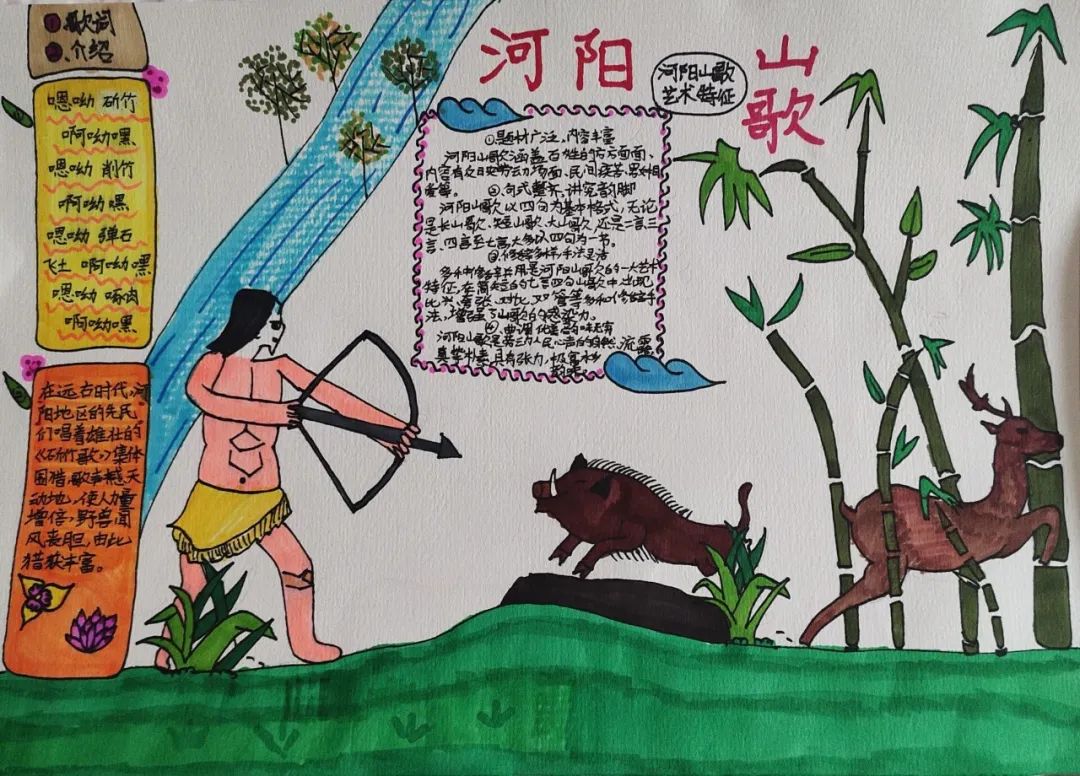 河阳山歌
①歌词
②介绍
嗯呦 斫竹
啊呦嘿
嗯呦 削竹
啊呦嘿
嗯呦 弹石
飞土 啊呦嘿
嗯呦 啄肉
啊呦嘿
在远古时代,河
阳地区的先民
们唱着雄壮的
《斫竹歌》集体
围猎,歌声撼天
动地,使人力量
增倍,野兽闻
风丧胆,由此
猎获丰富。
河阳山歌
艺术特征
①题材广泛,内容丰富
河阳山歌涵盖百姓的方方面面、
内容有众目劳动场面、民间疾苦、男女相
爱等。②句式整齐,讲究韵脚
河阳山歌以四句为基本格式,无论
是长山歌、短山歌、大山歌,还是二言三
言、四言至七言,大多以四句为一节。
③修辞多样,手法灵活
多种修辞并用是河阳山歌的一大艺术
特征,在简短的七言四句山歌中,出现
比兴、夸张、对比、双管等多种修辞手
法,增强了山歌的感染力。
④曲调优美,韵味无穷
河阳山歌是劳动人民心声的自然流露,
真挚朴素,具有张力,极富水乡